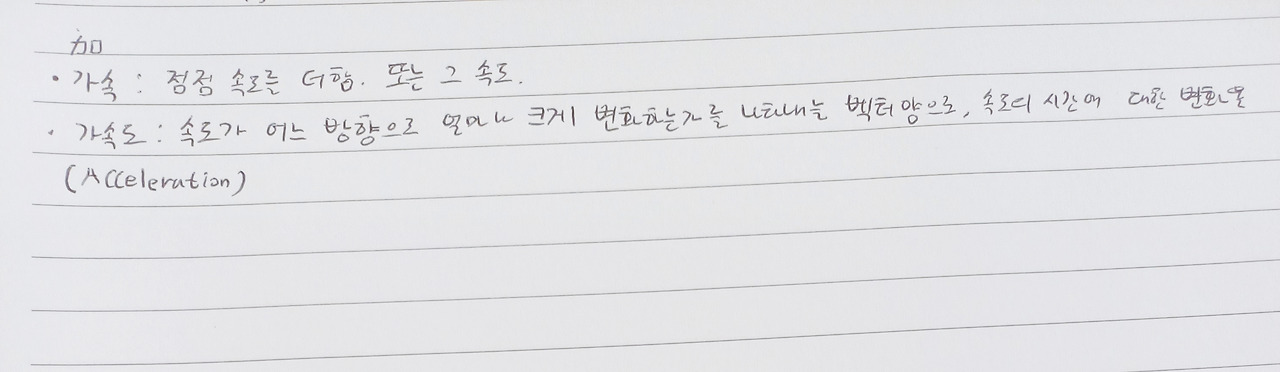 加
· 가속 : 점점 속도를 더함. 또는 그 속도.
· 가속도 : 속도가 어느 방향으로 얼마나 크게 변화하는가를 나타내는 벡터양으로, 속도의 시간에 대한 변화율
(Acceleration)